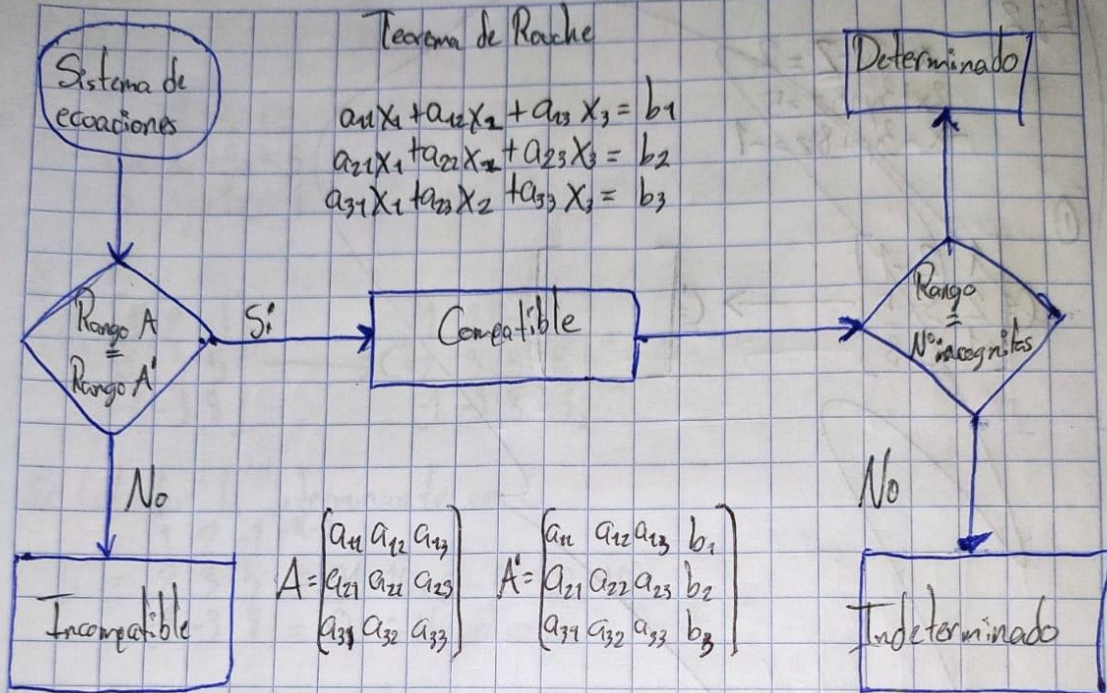 Teorema de Rouche
Sistema de
ecuaciones
a₁₁x₁ + a₁₂x₂ + a₁₃x₃ = b₁
a₂₁x₁ + a₂₂x₂ + a₂₃x₃ = b₂
a₃₁x₁ + a₂₃x₂ + a₃₃x₃ = b₃
Determinado
Rango A
=
Rango A'
Si
Compatible
Rango
=
Nº incognitas
No
No
Incompatible
A = [a₁₁ a₁₂ a₁₃]
[a₂₁ a₂₂ a₂₃]
[a₃₁ a₃₂ a₃₃]
A' = [a₁₁ a₁₂ a₁₃ b₁]
[a₂₁ a₂₂ a₂₃ b₂]
[a₃₁ a₃₂ a₃₃ b₃]
Indeterminado